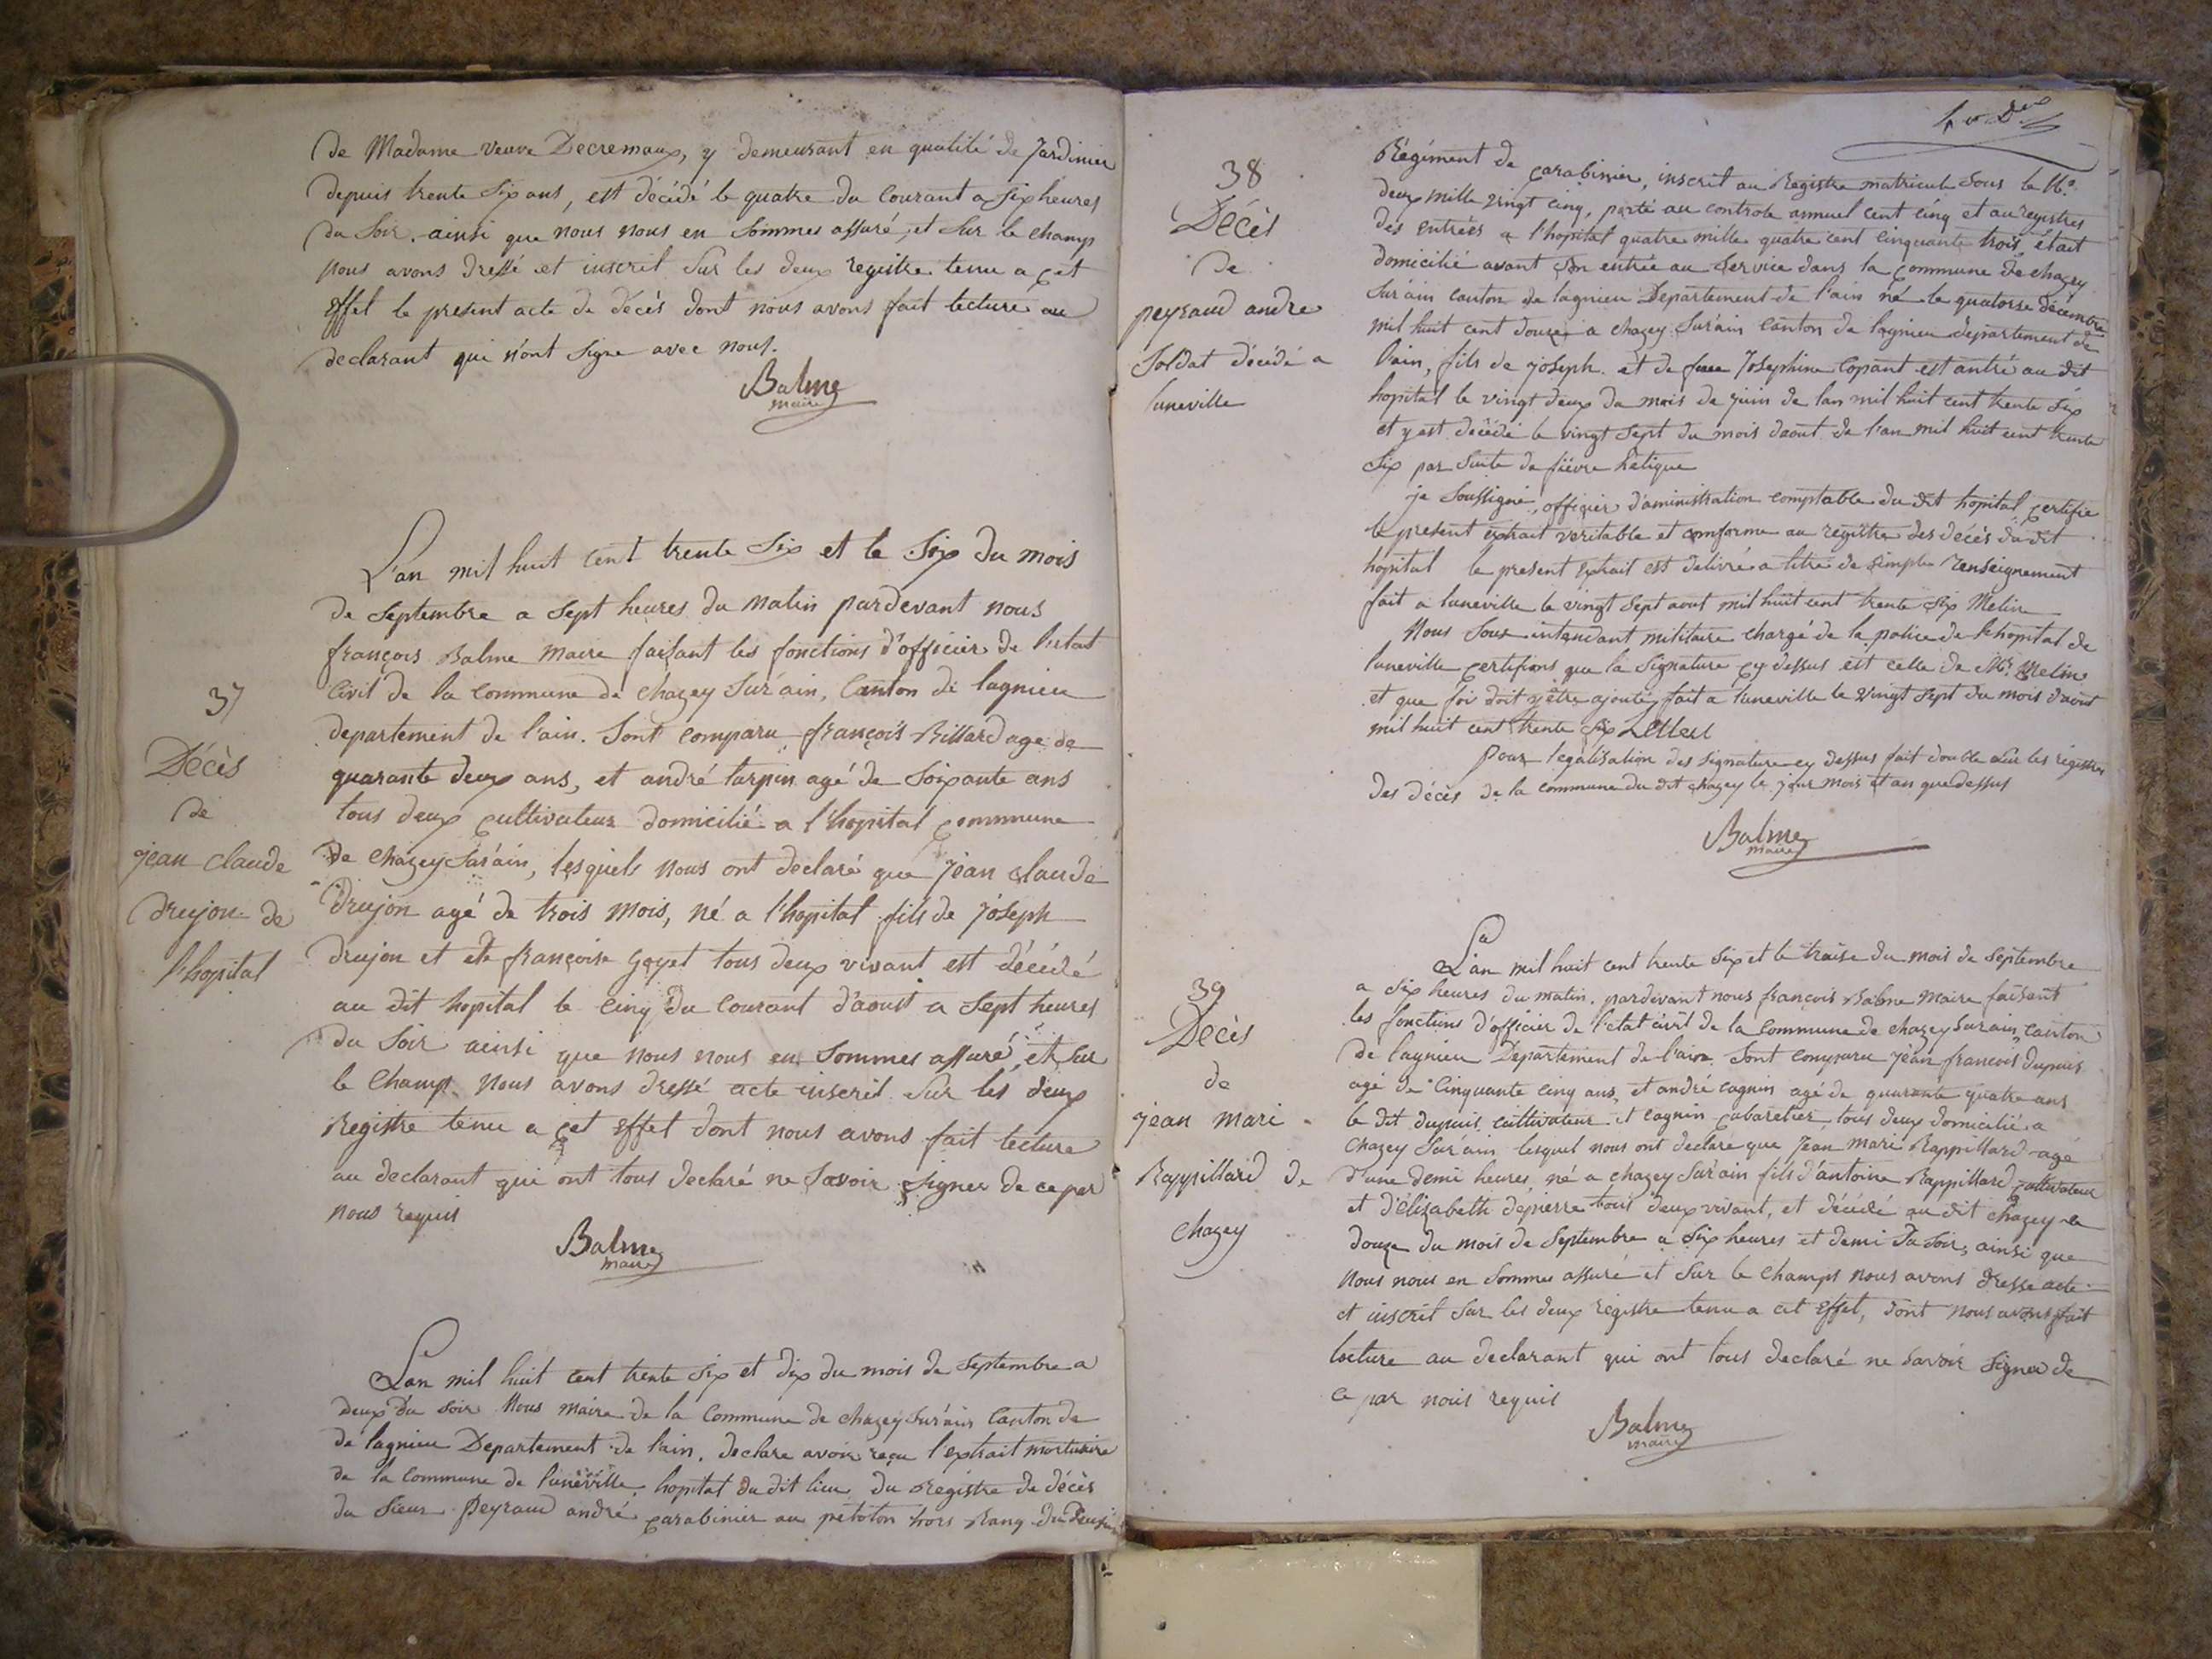 de Madame veuve Decremaux, y demeurant en qualité de Jardinier
depuis trente Six ans, est décédé le quatre du Courant a Six heures
du Soir. ainsi que nous nous en Sommes assuré, et Sur le champ
nous avons Dressé et inscrit Sur les deux registre tenu a cet
effet le present acte de décès dont nous avons fait lecture au
declarant qui n'ont Signe avec nous.
Balme
maire
37
Décès
de
jean claude
drujon de
l'hopital
L'an mil huit Cent trente Six et le Six du mois
de Septembre a Sept heures du Matin pardevant nous
françois Balme Maire faisant les fonctions d'officier de l'etat
Civil de la Commune de chazey Sur'ain, Canton de lagnieu
departement de l'ain. Sont comparu françois Billard age de
quarante deux ans, et andré turpin agé de Soixante ans
tous deux cultivateur domicilié a l'hopital commmune
de chazey Sur'ain, lesquels nous ont declaré que jean claude
Drujon agé de trois mois, né a l'hopital fils de joseph
drujon et de françoise goyet tous deux vivant est décédé
au dit hopital le cinq du Courant d'aoust a Sept heures
du Soir ainsi que nous nous en Sommes assuré, et Sur
le Champ. Nous avons dressé acte inscrit Sur les deux
Registre tenu a cet effet dont nous avons fait lecture
au declarant qui ont tous declaré ne Savoir Signer de ce par
nous requis
Balme
maire
L'an mil huit cent trente Six et dix du mois de Septembre a
deux du Soir Nous Maire de la Commune de chazey Sur'ain Canton de
de lagnieu Departement de l'ain. declare avoir reçu l'extrait mortuaire
de la Commune de lunéville, hopital du dit lieu, du Registre de décès
du Sieur Peyraud andré carabinier au petoton hors Rang du
38
Décès
de
peyraud andre
Soldat décédé a
luneville
Régiment de carabinier, inscrit au Registre matricule Sous le No.
deux mille vingt cinq, porté au controle annuel cent cinq et au registres
des entrées a l'hopital quatre mille quatre cent cinquante trois était
domicilié avant Son entrée au Service dans la commune de chazey
Sur'ain canton de lagnieu Departement de l'ain né le quatorse décembre
mil huit cent douze a chazey Sur'ain Canton de lagnieu departement de
l'ain, fils de joseph. et de feue Josephine Copant est antré au dit
hopital le vingt deux du mois de juin de lan mil huit cent trente Six
et y est décédé le vingt Sept du mois daout de l'an mil huit cent trente
Six par Suite de fièvre hétique
je Soussigné, officier d'aministration comptable du dit hopital certifie
le present extrait veritable et comforme au registre des décès du dit
hopital le present extrait est delivré a titre de Simple renseignement
fait a luneville le vingt Sept aout mil huit cent trente Six Melin
Nous Sous intendant militaire chargé de la police de l'hopital de
luneville certifions que la Signature cy dessus est celle de Mr. Melin
et que foi doit y être ajouté, fait a luneville le vingt Sept du mois d'aout
mil huit cent trente Six
Pour legalisation des Signature cy dessus fait double Sur les registres
des décès de la commune du dit chazey le jour mois et an que dessus
Balme
maire
39
Decès
de
jean mari
Rappillard de
chazey
L'an mil huit cent trente Six et le treise du mois de Septembre
a Six heures du matin. pardevant nous françois Balme Maire faisant
les fonctions d'officier de l'etat civil de la Commune de chazey Sur ain, Canton
de lagnieu Departement de l'ain. Sont comparu jean françois dupuis
agé de Cinquante cinq ans, et andré cagnin agé de quarante quatre ans
le dit dupuis cultivateur et cagnin cabaretier tous deux domicilié a
chazey Sur'ain lesquel nous ont declaré que Jean mari Rappillard agé
d'une demi heures, né a chazey Sur'ain fils d'antoine Rappillard cultivateur
et d'élizabeth depierre tous deux vivant, et décédé au dit chazey le
douze du mois de Septembre a Six heures et demi du Soir, ainsi que
Nous nous en Sommes assuré et Sur le champs nous avons dresse acte
et inscrit Sur les deux registre tenu a cet effet, dont nous avons fait
lecture au declarant qui ont tous declaré ne Savoir Signer de
ce par nous requis
Balme
maire